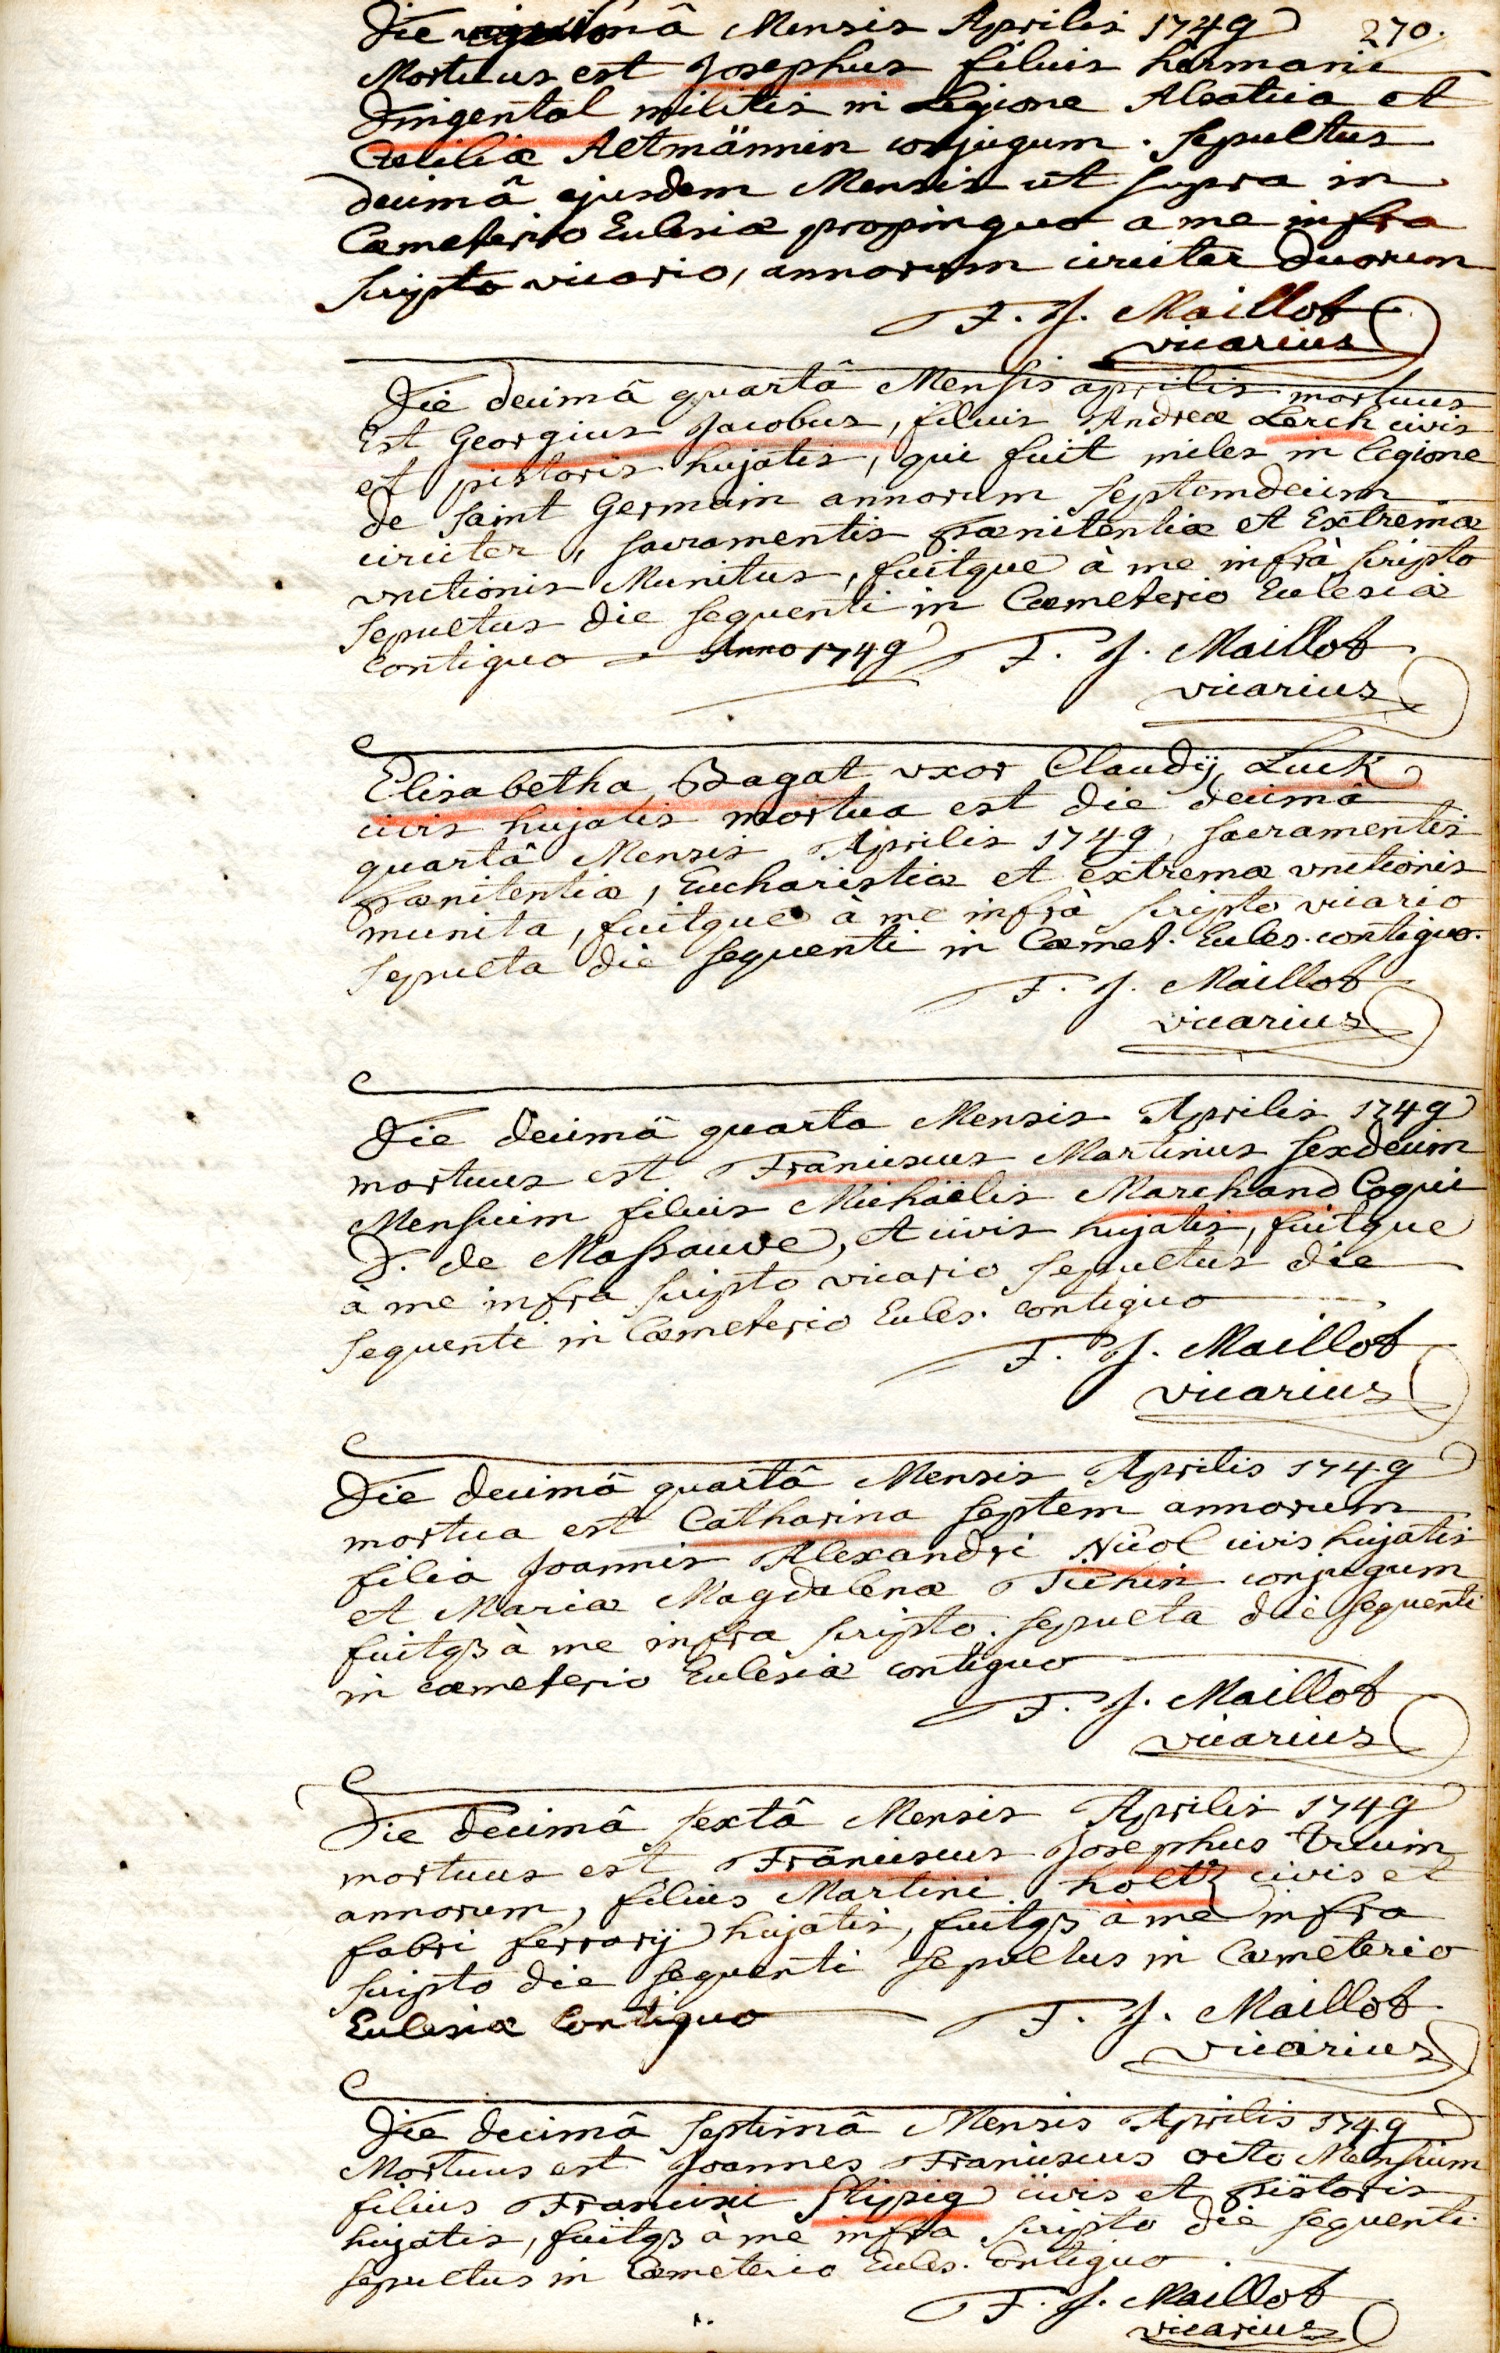 Die decimâ Mensis Aprilis 1749 270.
Mortuus est Josephus filius hermani
Dingental militis in Legione Alsatica et
Cæciliæ Altmännin conjugum. sepultus
decimâ ejusdem Mensis ut supra in
Cæmeterio Ecclesiæ propinquo a me infra
scripto vicario, annorum circiter duorum
F. J. Maillot
vicarius
Die decimâ quartâ Mensis aprilis mortuus
Est Georgius Jacobus, filius Andreæ Lerch civis
et pistoris hujatis, qui fuit miles in legione
de saint Germain annorum septemdecim
circiter, sacramentis Pænitentiæ et Extremæ
vnctionis Munitus, fuitque à me infrà scripto
sepultus die sequenti in Cæmeterio Ecclesiæ
Contiguo Anno 1749 F. J. Maillot
vicarius
Elisabetha Bagat vxor Claudij Luck
civis hujatis mortua est die decimâ
quartâ Mensis Aprilis 1749, sacramentis
Pænitentiæ, Eucharistiæ et extremæ vnctionis
munita, fuitque à me infrà scripto vicario
sepulta die sequenti in Cæmet. Eccles. contiguo.
F. J. Maillot
vicarius
Die decimâ quarta Mensis Aprilis 1749
mortuus est Franciscus Martinus sexdecim
Mensium filius Michäelis Marchand Coqui
D. de Massauve, et civis hujatis, fuitque
à me infra scripto vicario sepultus die
sequenti in Cæmeterio Eccles. contiguo
F. J. Maillot
vicarius
Die decimâ quartâ Mensis Aprilis 1749
mortua est Catharina septem annorum
filia Joannis Alexandri Nicol civis hujatis
et Mariæ Magdalenæ Tichin conjugum
fuitqȝ à me infra scripto sepulta die sequenti
in cæmeterio Ecclesiæ contiguo
F. J. Maillot
vicarius
Die decimâ sextâ Mensis Aprilis 1749
mortuus est Franciscus Josephus trium
annorum, filius Martini holtz civis et
fabri ferrarij hujatis, fuitqȝ à me infra
scripto die sequenti sepultus in Cæmeterio
Ecclesiæ Contiguo F. J. Maillot
vicarius
Die decimâ septimâ Mensis Aprilis 1749
Mortuus est Joannes Franciscus octo Mensium
filius Francisci Slipsig civis et Pistoris
hujatis, fuitqȝ à me infra scripto die sequenti
sepultus in Cæmeterio Eccles. Contiguo.
F. J. Maillot
vicarius